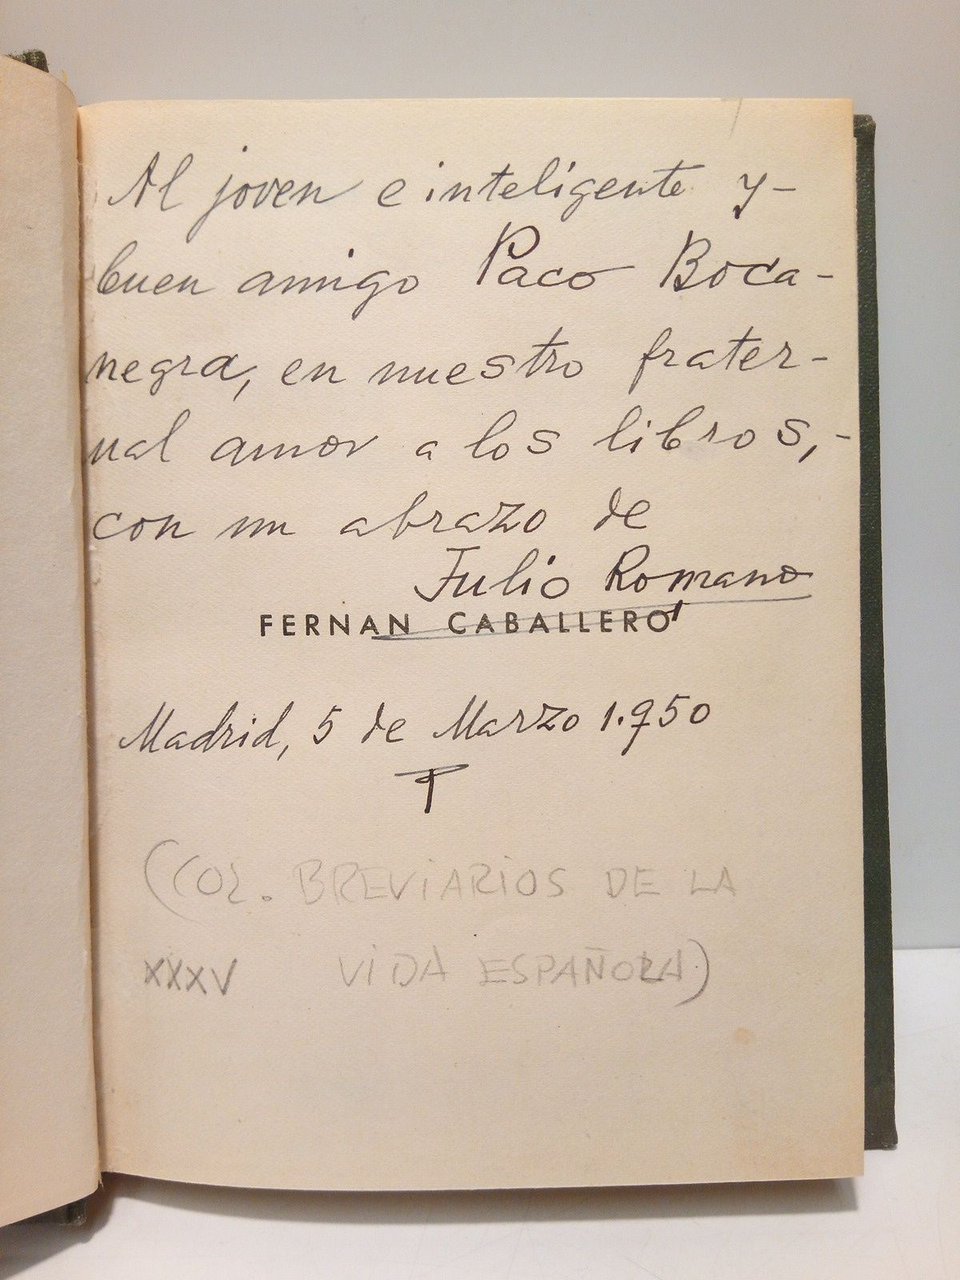 Al joven e inteligente y-
buen amigo Paco Boca-
negra, en nuestro frater-
nal amor a los libros,-
con un abrazo de
Julio Romano
FERNAN CABALLERO
Madrid, 5 de Marzo 1.950
(COL. BREVIARIOS DE LA
XXXV VIDA ESPAÑOLA)